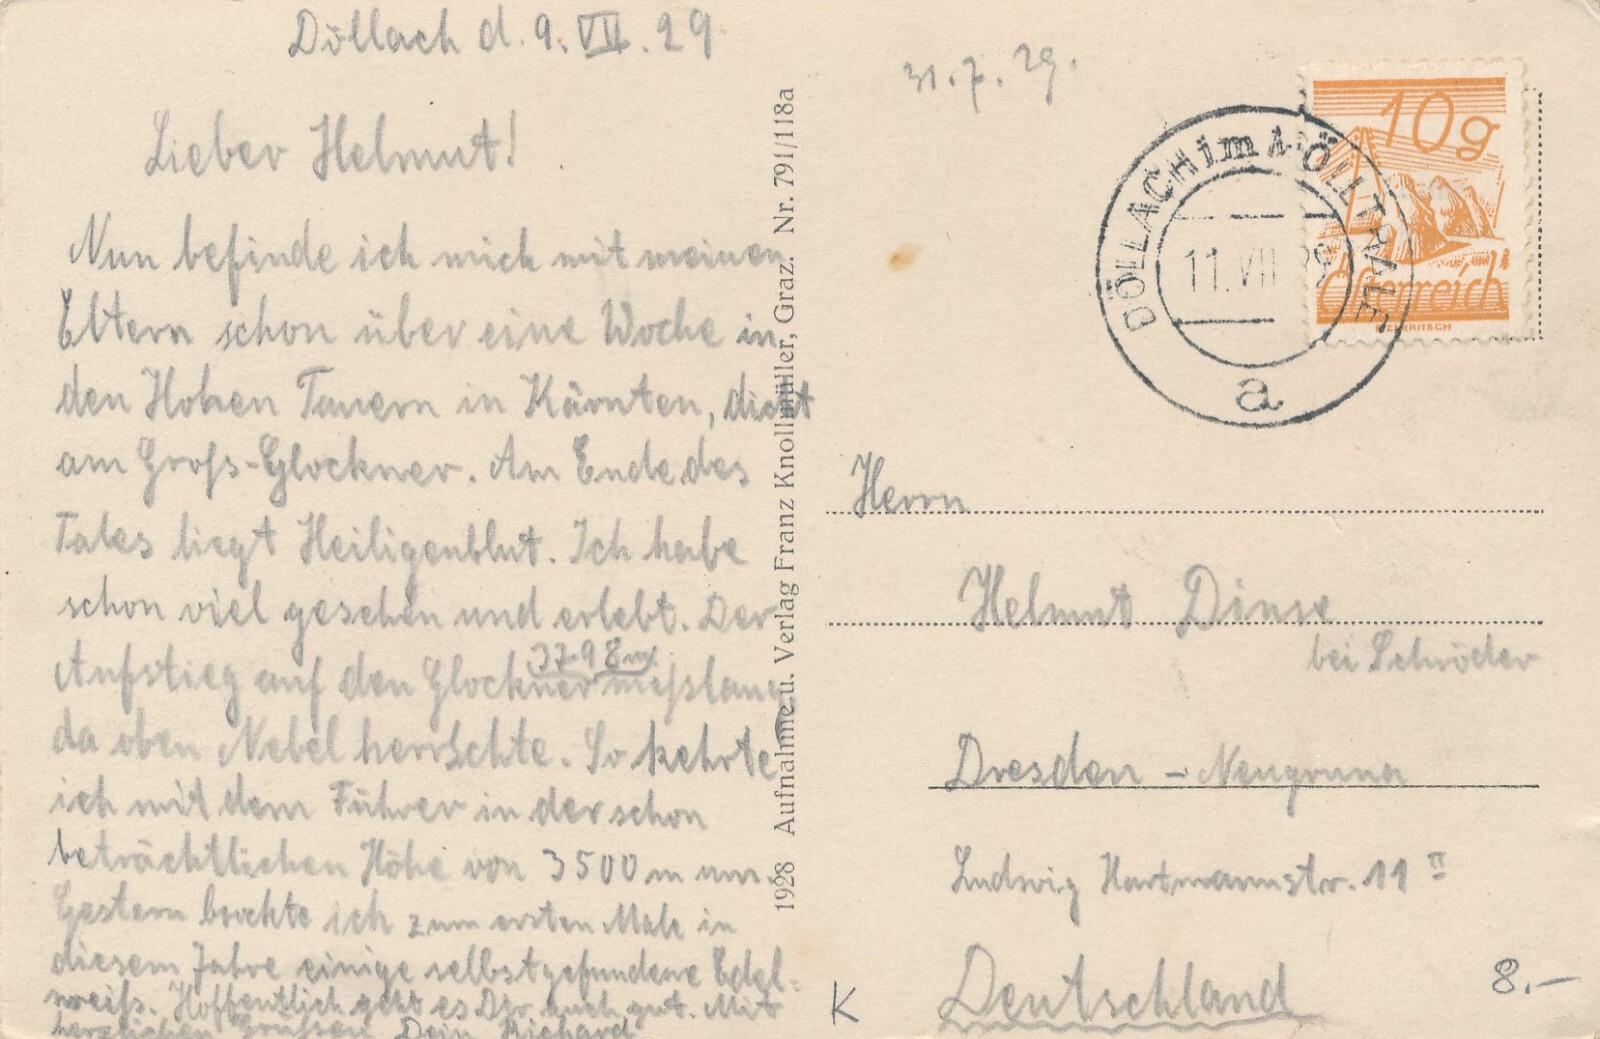 Döllach d. 9. VII. 29
Lieber Helmut!
Nun befinde ich mich mit meinen
Eltern schon über eine Woche in
den Hohen Tauern in Kärnten, dicht
am Groß-Glockner. Am Ende des
Tales liegt Heiligenblut. Ich habe
schon viel gesehen und erlebt. Der
3798 m
Aufstieg auf den Glockner misslang
da oben Nebel herrschte. So kehrte
ich mit dem Führer in der schon
beträchtlichen Höhe von 3500 m um.
Gestern brachte ich zum ersten Male in
diesem Jahre einige selbstgefundene Edel-
weiß. Hoffentlich geht es Dir auch gut. Mit
herzlichen Grüssen Dein Richard
1928 Aufnahme u. Verlag Franz Knollmüller, Graz. Nr. 791/118a
31.7.29.
10g
Österreich
DÖLLACH im MÖLLTALE
11. VII 29
a
Herrn
Helmut Dinse
bei Schröder
Dresden - Neugruna
Ludwig Hartmannstr. 11 II
Deutschland
K
8.-